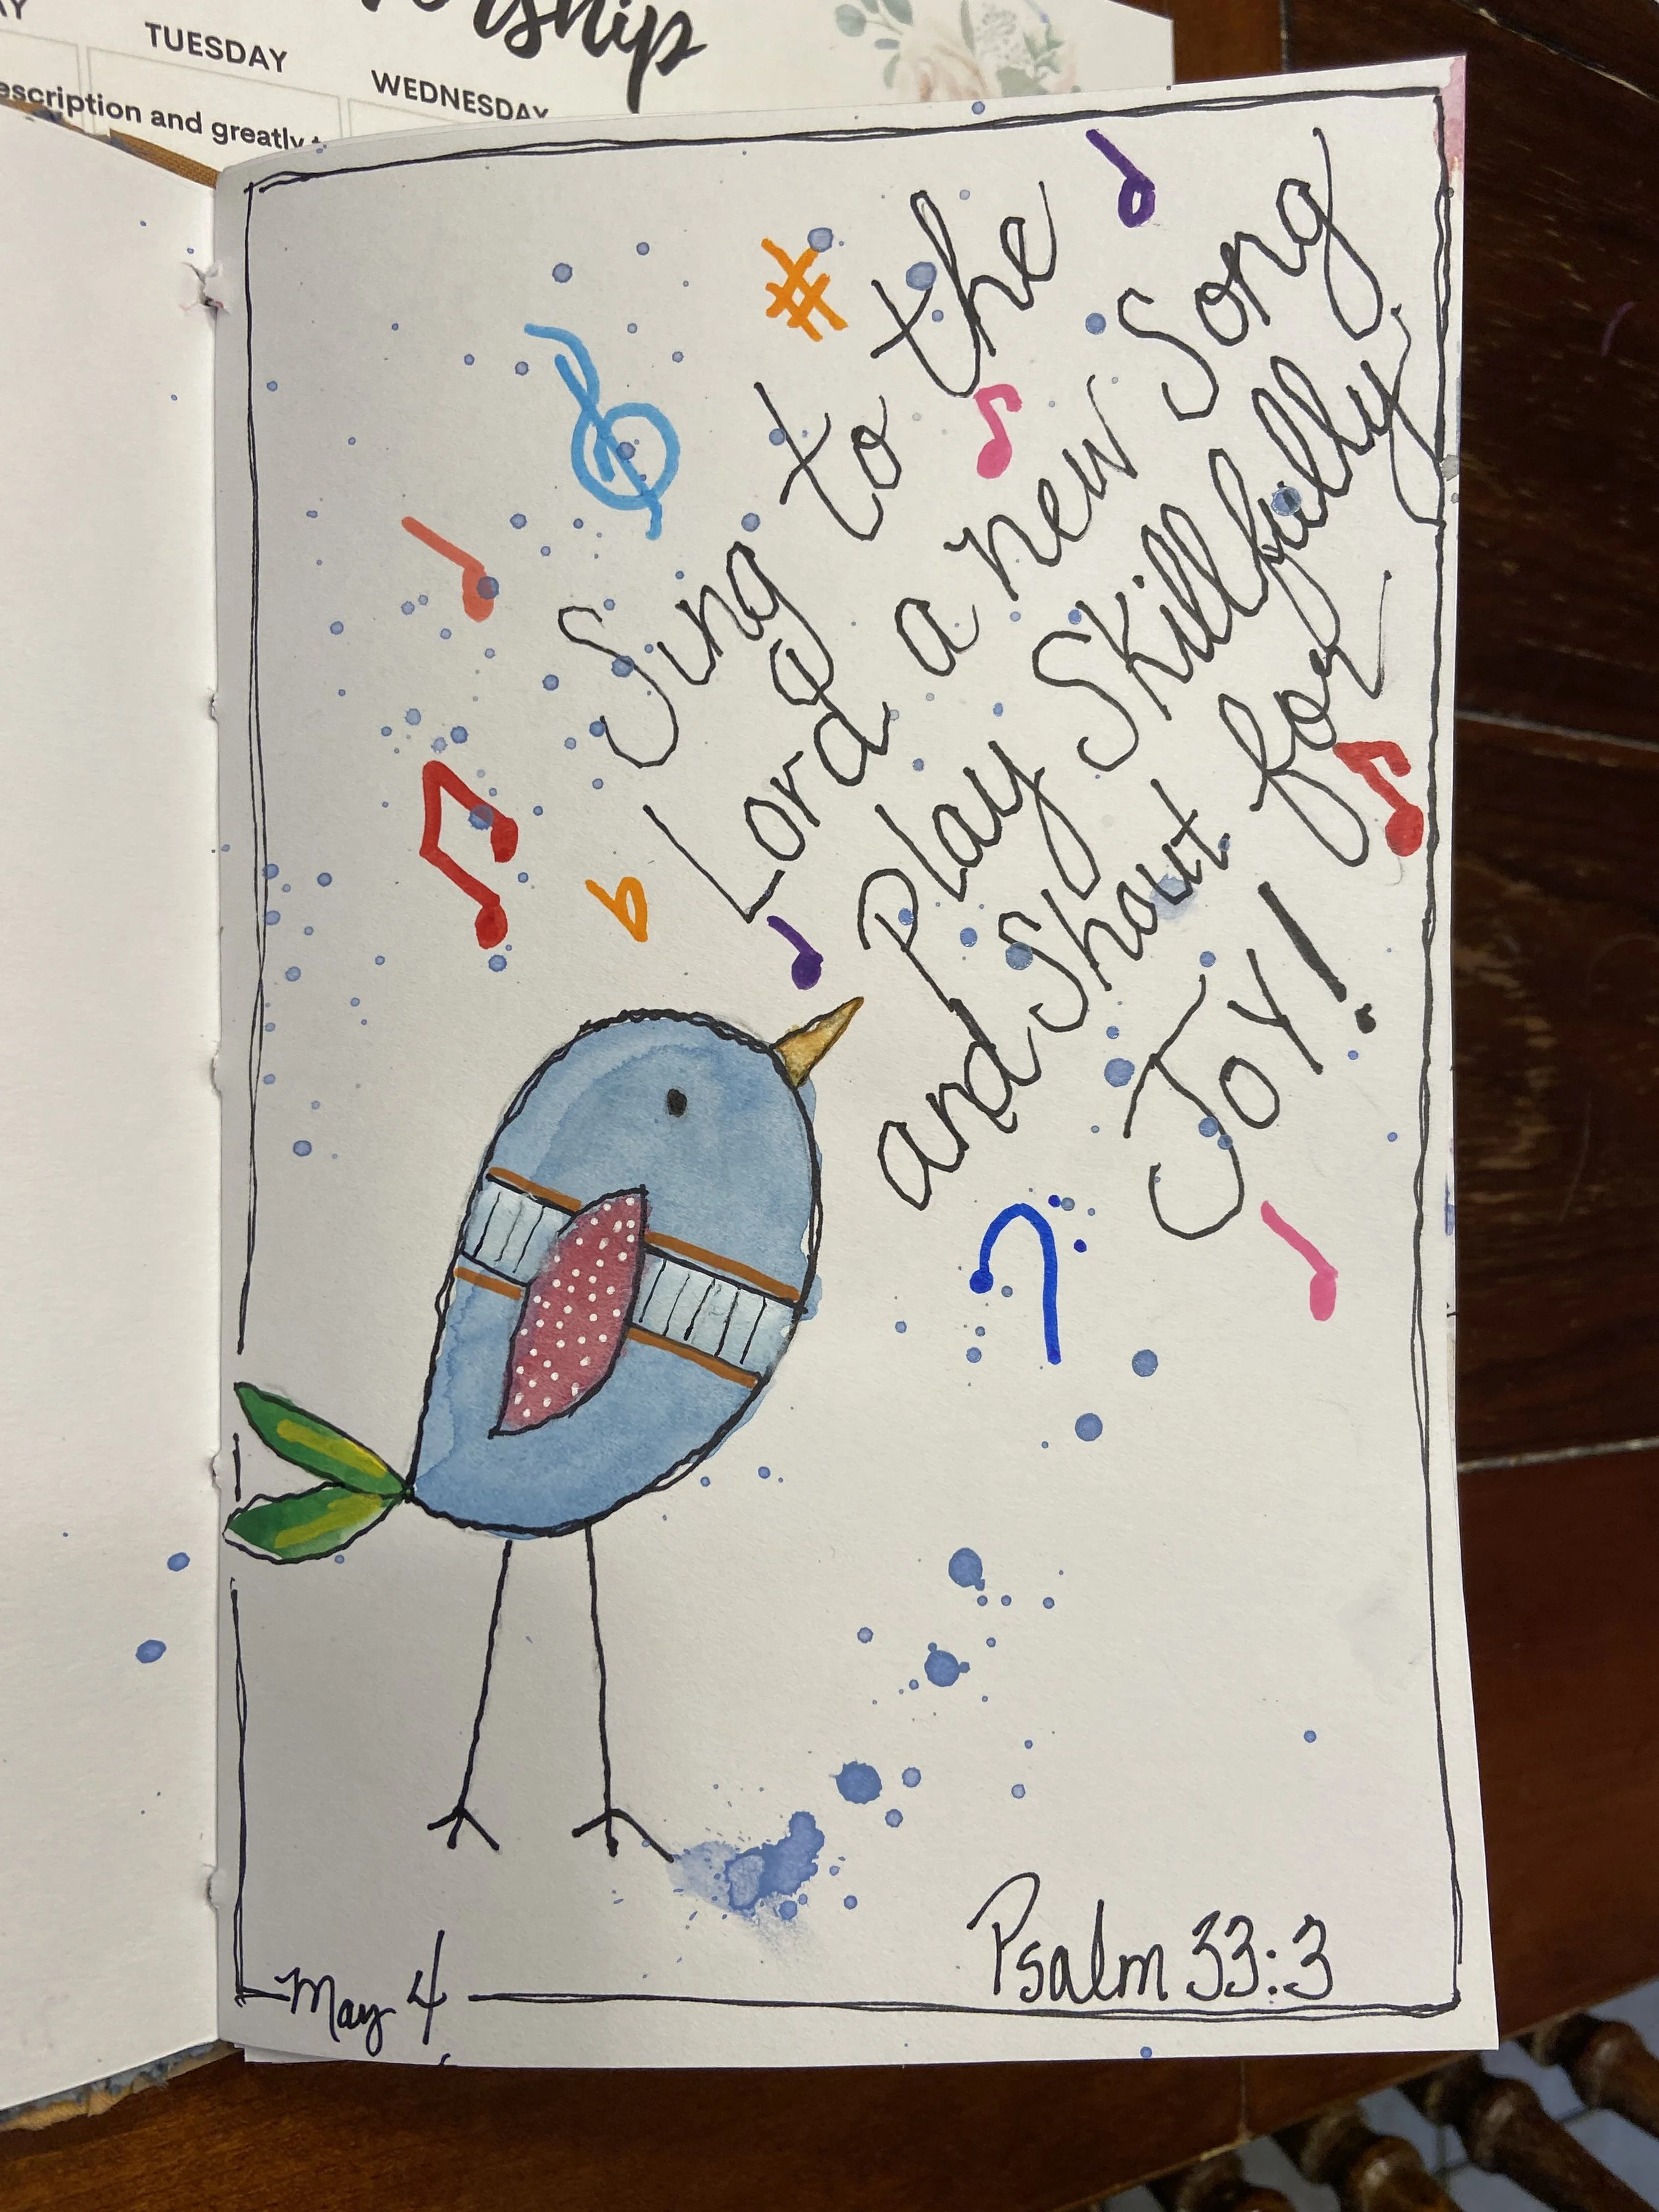 TUESDAY
WEDNESDAY
escription and greatly
Sing to the
Lord a new Song
Play Skillfully
and Shout for
Joy!
May 4
Psalm 33:3